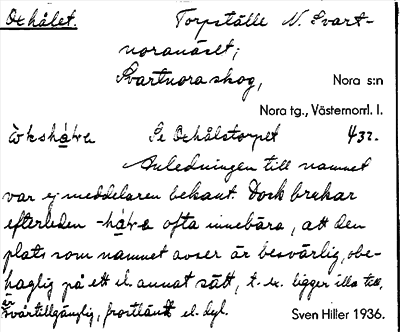 Oxhålet. Torpställe N. Svart-
noranäset;
Svartnora skog, Nora s:n
Nora tg., Västernorrl. l.
Se Oxhålstorpet 432.
Anledningen till namnet
var ej meddelaren bekant. Dock brukar
efterleden ofta innebära, att den
plats som namnet avser är besvärlig, obe-
haglig på ett el. annat sätt, t. ex. ligger illa till,
är svårtillgänglig, frostlänt el. dyl. Sven Hiller 1936.